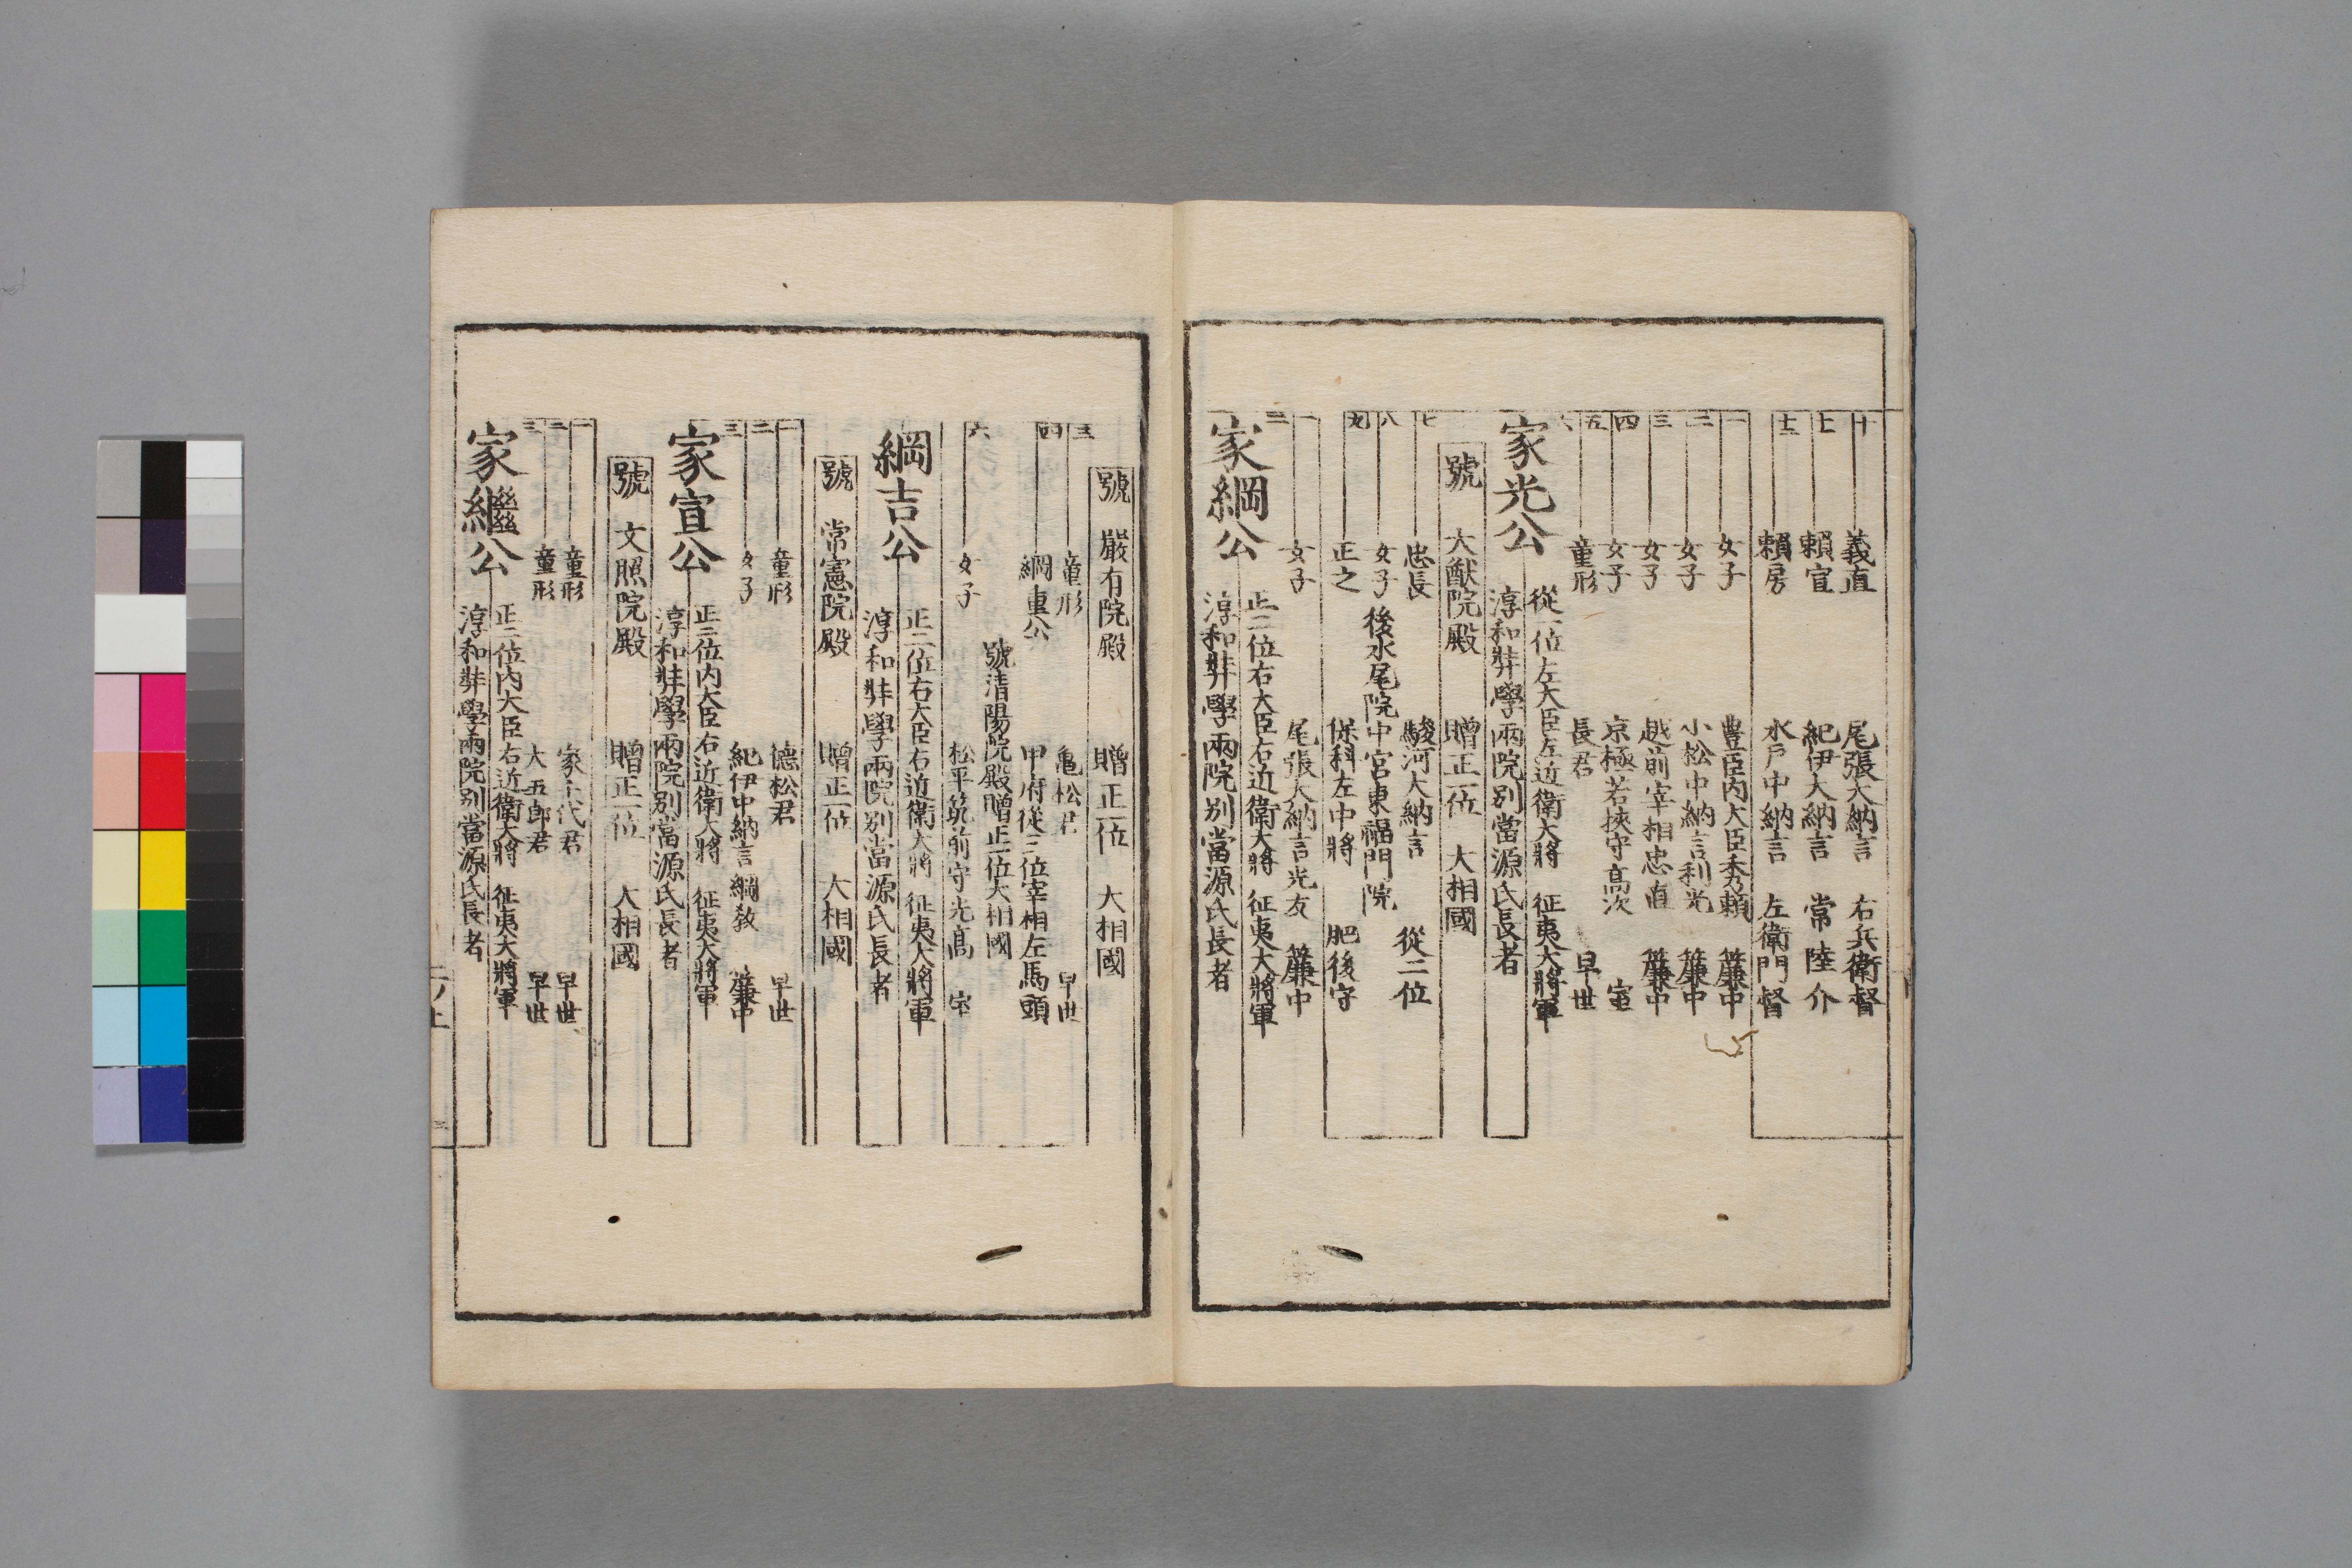 十 義直 尾張大納言 右兵衛督
十一 頼宣 紀伊大納言 常陸介
十二 頼房 水戸中納言 左衛門督
一 女子 豊臣内大臣秀頼 簾中
二 女子 小松中納言利光 簾中
三 女子 越前宰相忠直 簾中
四 女子 京極若狭守高次 室
五 童形 長君 早世
六 家光公 從一位左大臣左近衛大將 征夷大將軍
淳和弉學兩院別當源氏長者
號 大猷院殿 贈正一位 大相國
七 忠長 駿河大納言 從二位
八 女子 後水尾院中宮東福門院
九 正之 保科左中將 肥後守
一 女子 尾張大納言光友 簾中
二 家綱公 正二位右大臣右近衛大將 征夷大將軍
淳和弉學兩院別當源氏長者
號 嚴有院殿 贈正一位 大相國
三 童形 亀松君 早世
四 綱重公 甲府從三位宰相左馬頭
號清陽院殿贈正一位大相國
六 女子 松平筑前守光高 室
綱吉公 正二位右大臣右近衛大將 征夷大將軍
淳和弉學兩院別當源氏長者
號 常憲院殿 贈正一位 大相國
一 童形 德松君 早世
二 女子 紀伊中納言綱教 簾中
三 家宣公 正二位内大臣右近衛大將 征夷大將軍
淳和弉學兩院別當源氏長者
號 文照院殿 贈正一位 大相國
一 童形 家千代君 早世
二 童形 大五郎君 早世
三 家繼公 正二位内大臣右近衛大將 征夷大將軍
淳和弉學兩院別當源氏長者